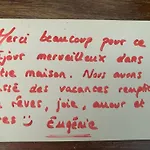 Merci beaucoup pour ce
séjour merveilleux dans
maison. Nous avons
des vacances
rêves, joie, amour et
Eugénie